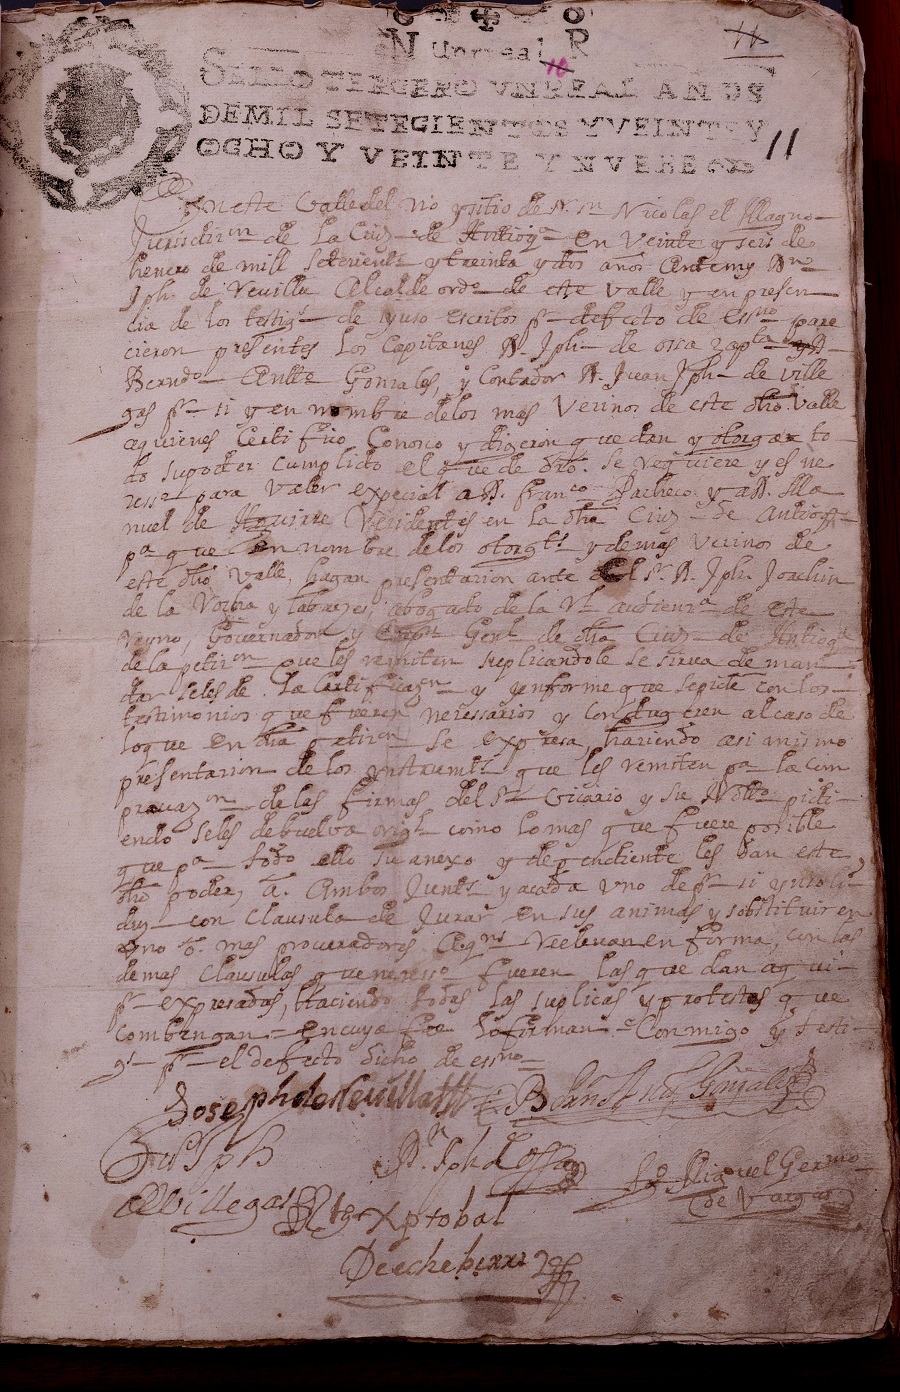 11
Un real
10
SELLO TERCERO VN REAL AÑOS
DE MIL SETECIENTOS Y VEINTE Y
OCHO Y VEINTE Y NVEBE
11
En este Valle del rio y sitio de Sn Nicolas el Magno
Jurisdicn de La Ciud de Antioqa en Veinte y seis de
henero de mill setecients y treinta y dos años Ante my Dn
Jph de Revilla Alcalde ordo de este valle y en presen
cia de los testigs de iuso escritos pr defecto de essno pare
cieron presentes Los Capitanes D. Jph de ossa zapta y D
Berndo Gonzales, y Contador D. Juan Jph de ville
gas pr si y en nombre de los mas Vecinos de este dho Valle
a quienes Certifico Conosco y dixeron que dan y otorgan to
do su poder cumplido el que de dro. se requiere y es ne
cessr para valer especial a D. Franco Pacheco y a D. Ma
nuel de Aguirre Recidentes en La dha Ciud de Antioqa
pa que en nombre de los otorgts y demas vecinos de
este dho Valle, hagan presentacion ante el Sr D. Jph Joachin
de la Rocha y labarzes, abogado de la Rl audienca de este
reyno, Governador y Capn Genl de dha Ciud de Antioqa
de la peticn que les remiten suplicandole se sirva de man
dar seles de La Certificazn y ynforme que se pide con los
testimonios que fueren necessarios y condugeren al caso de
lo que en dha peticn se expresa, haciendo asi mismo
presentacion de los ynstrumts que les remiten pa la com
provazn de las firmas del Sr Vicario y su Notro pidi
endo seles debuelva origl como lo mas que fuere posible
que pa todo ello su anexo y dependiente les dan este
dho poder, a Ambos Junts y a cada uno de pr si ynsoli
dun con clausula de Jurar en sus animas y sobstituir en
uno o mas procuradores A qns Reelevan en forma, con las
demas clausulas que necesso fueren las que dan aqui
pr expresadas, Haciendo todas las suplicas y protestas que
combengan en cuya fee lo firman Conmigo y testi
gs pr el defecto dicho de essno
Joseph de Revilla
Jun Jph
de Villegas
Dn Jph de Ossa
Miguel Germo
de Vargas
tgo Xptobal
De echeberri